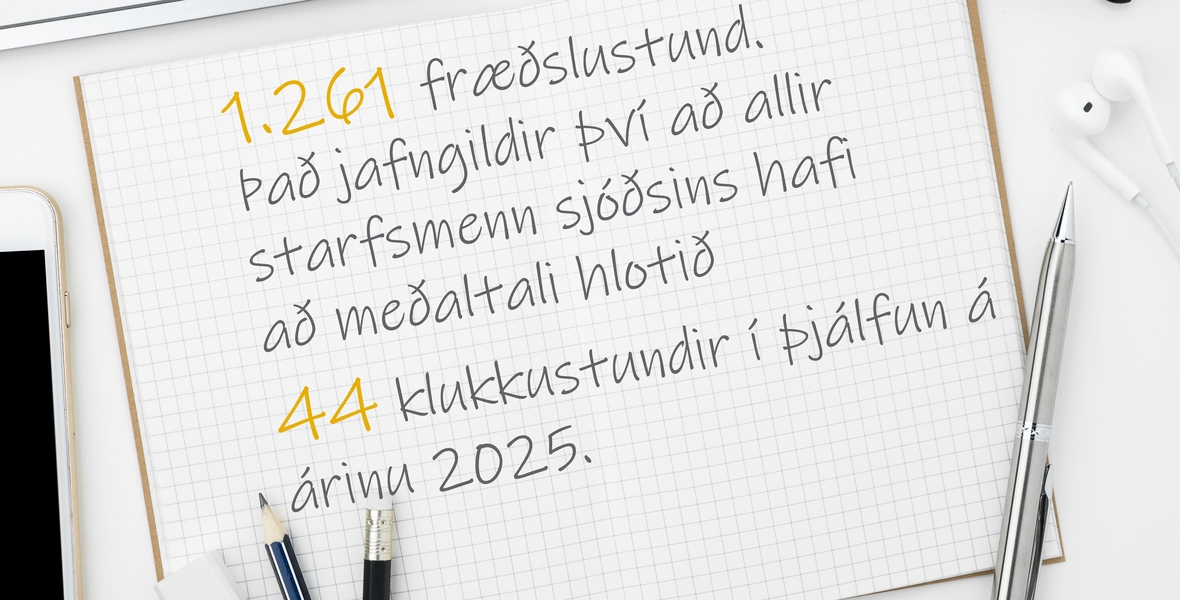 1.261 fræðslustund.
Það jafngildir því að allir
starfsmenn sjóðsins hafi
að meðaltali hlotið
44 klukkustundir í þjálfun á
árinu 2025.